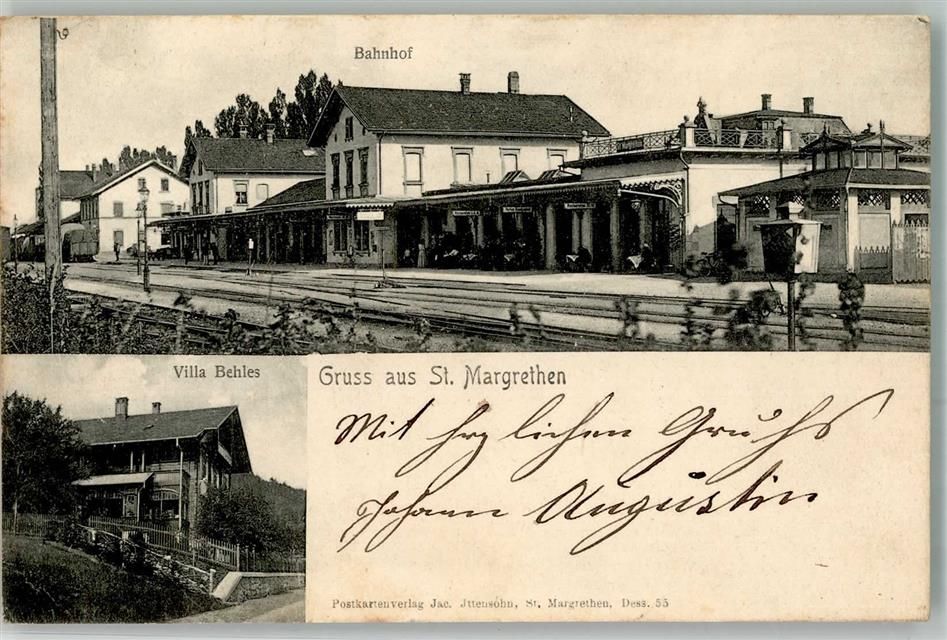 Bahnhof
Villa Behles
Gruss aus St. Margrethen
Mit herzlichen Gruss
Johann Augustin
Postkartenverlag Jac. Jttensohn, St. Margrethen, Dess. 55